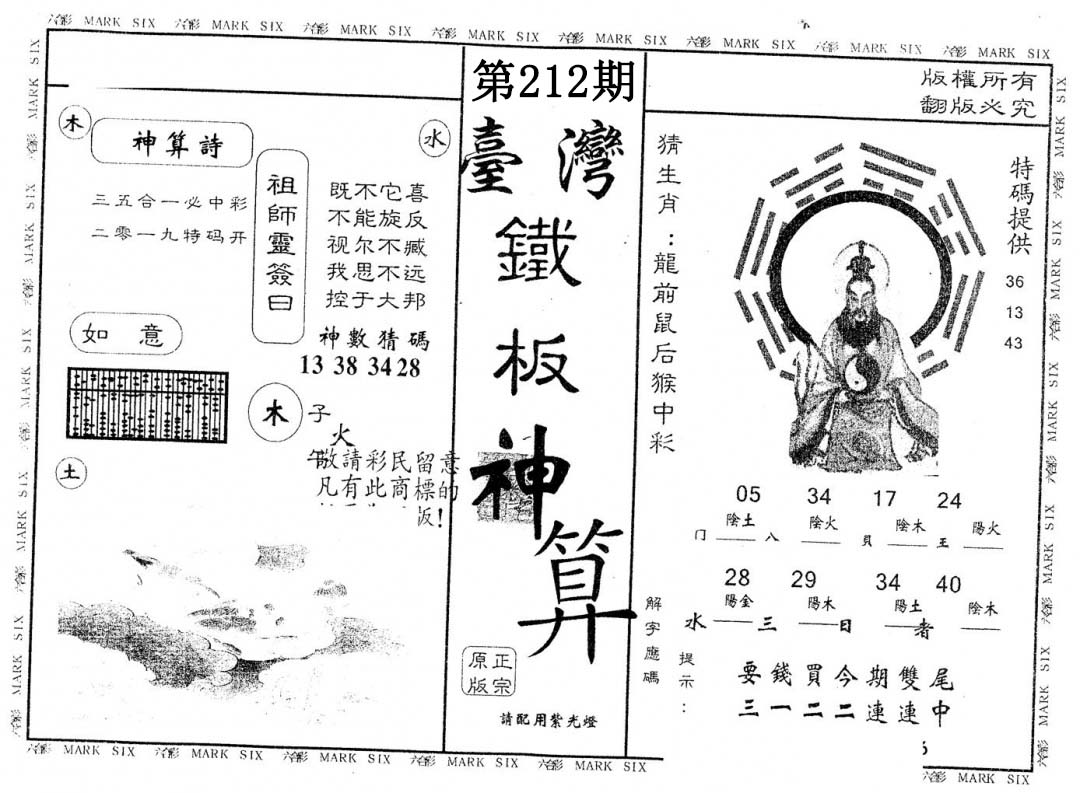 六合彩 MARK SIX 六合彩 MARK SIX 六合彩 MARK SIX 六合彩 MARK SIX 六合彩 MARK SIX 六合彩 MARK SIX 六合彩 MARK SIX 六合彩 MARK SIX
第212期
臺灣
鐵
板
神
算
正宗
原版
請配用紫光燈
木
神算詩
水
三五合一必中彩
二零一九特码开
祖師靈簽曰
既不它喜
不能旋反
视尔不臧
我思不远
控于大邦
如意
神數猜碼
13 38 34 28
木
子
火
午
敬請彩民留意
凡有此商標的
版!
土
版權所有
翻版必究
猜生肖:龍前鼠后猴中彩
特碼提供
36
13
43
05 34 17 24
陰土 陰火 陰木 陽火
门 八 貝 王
28 29 34 40
陽金 陽木 陽土 陰木
水 三 日 者
解字應碼
提示:
要錢買今期雙尾
三一二二連連中
六合彩 MARK SIX 六合彩 MARK SIX 六合彩 MARK SIX 六合彩 MARK SIX 六合彩 MARK SIX
六合彩 MARK SIX